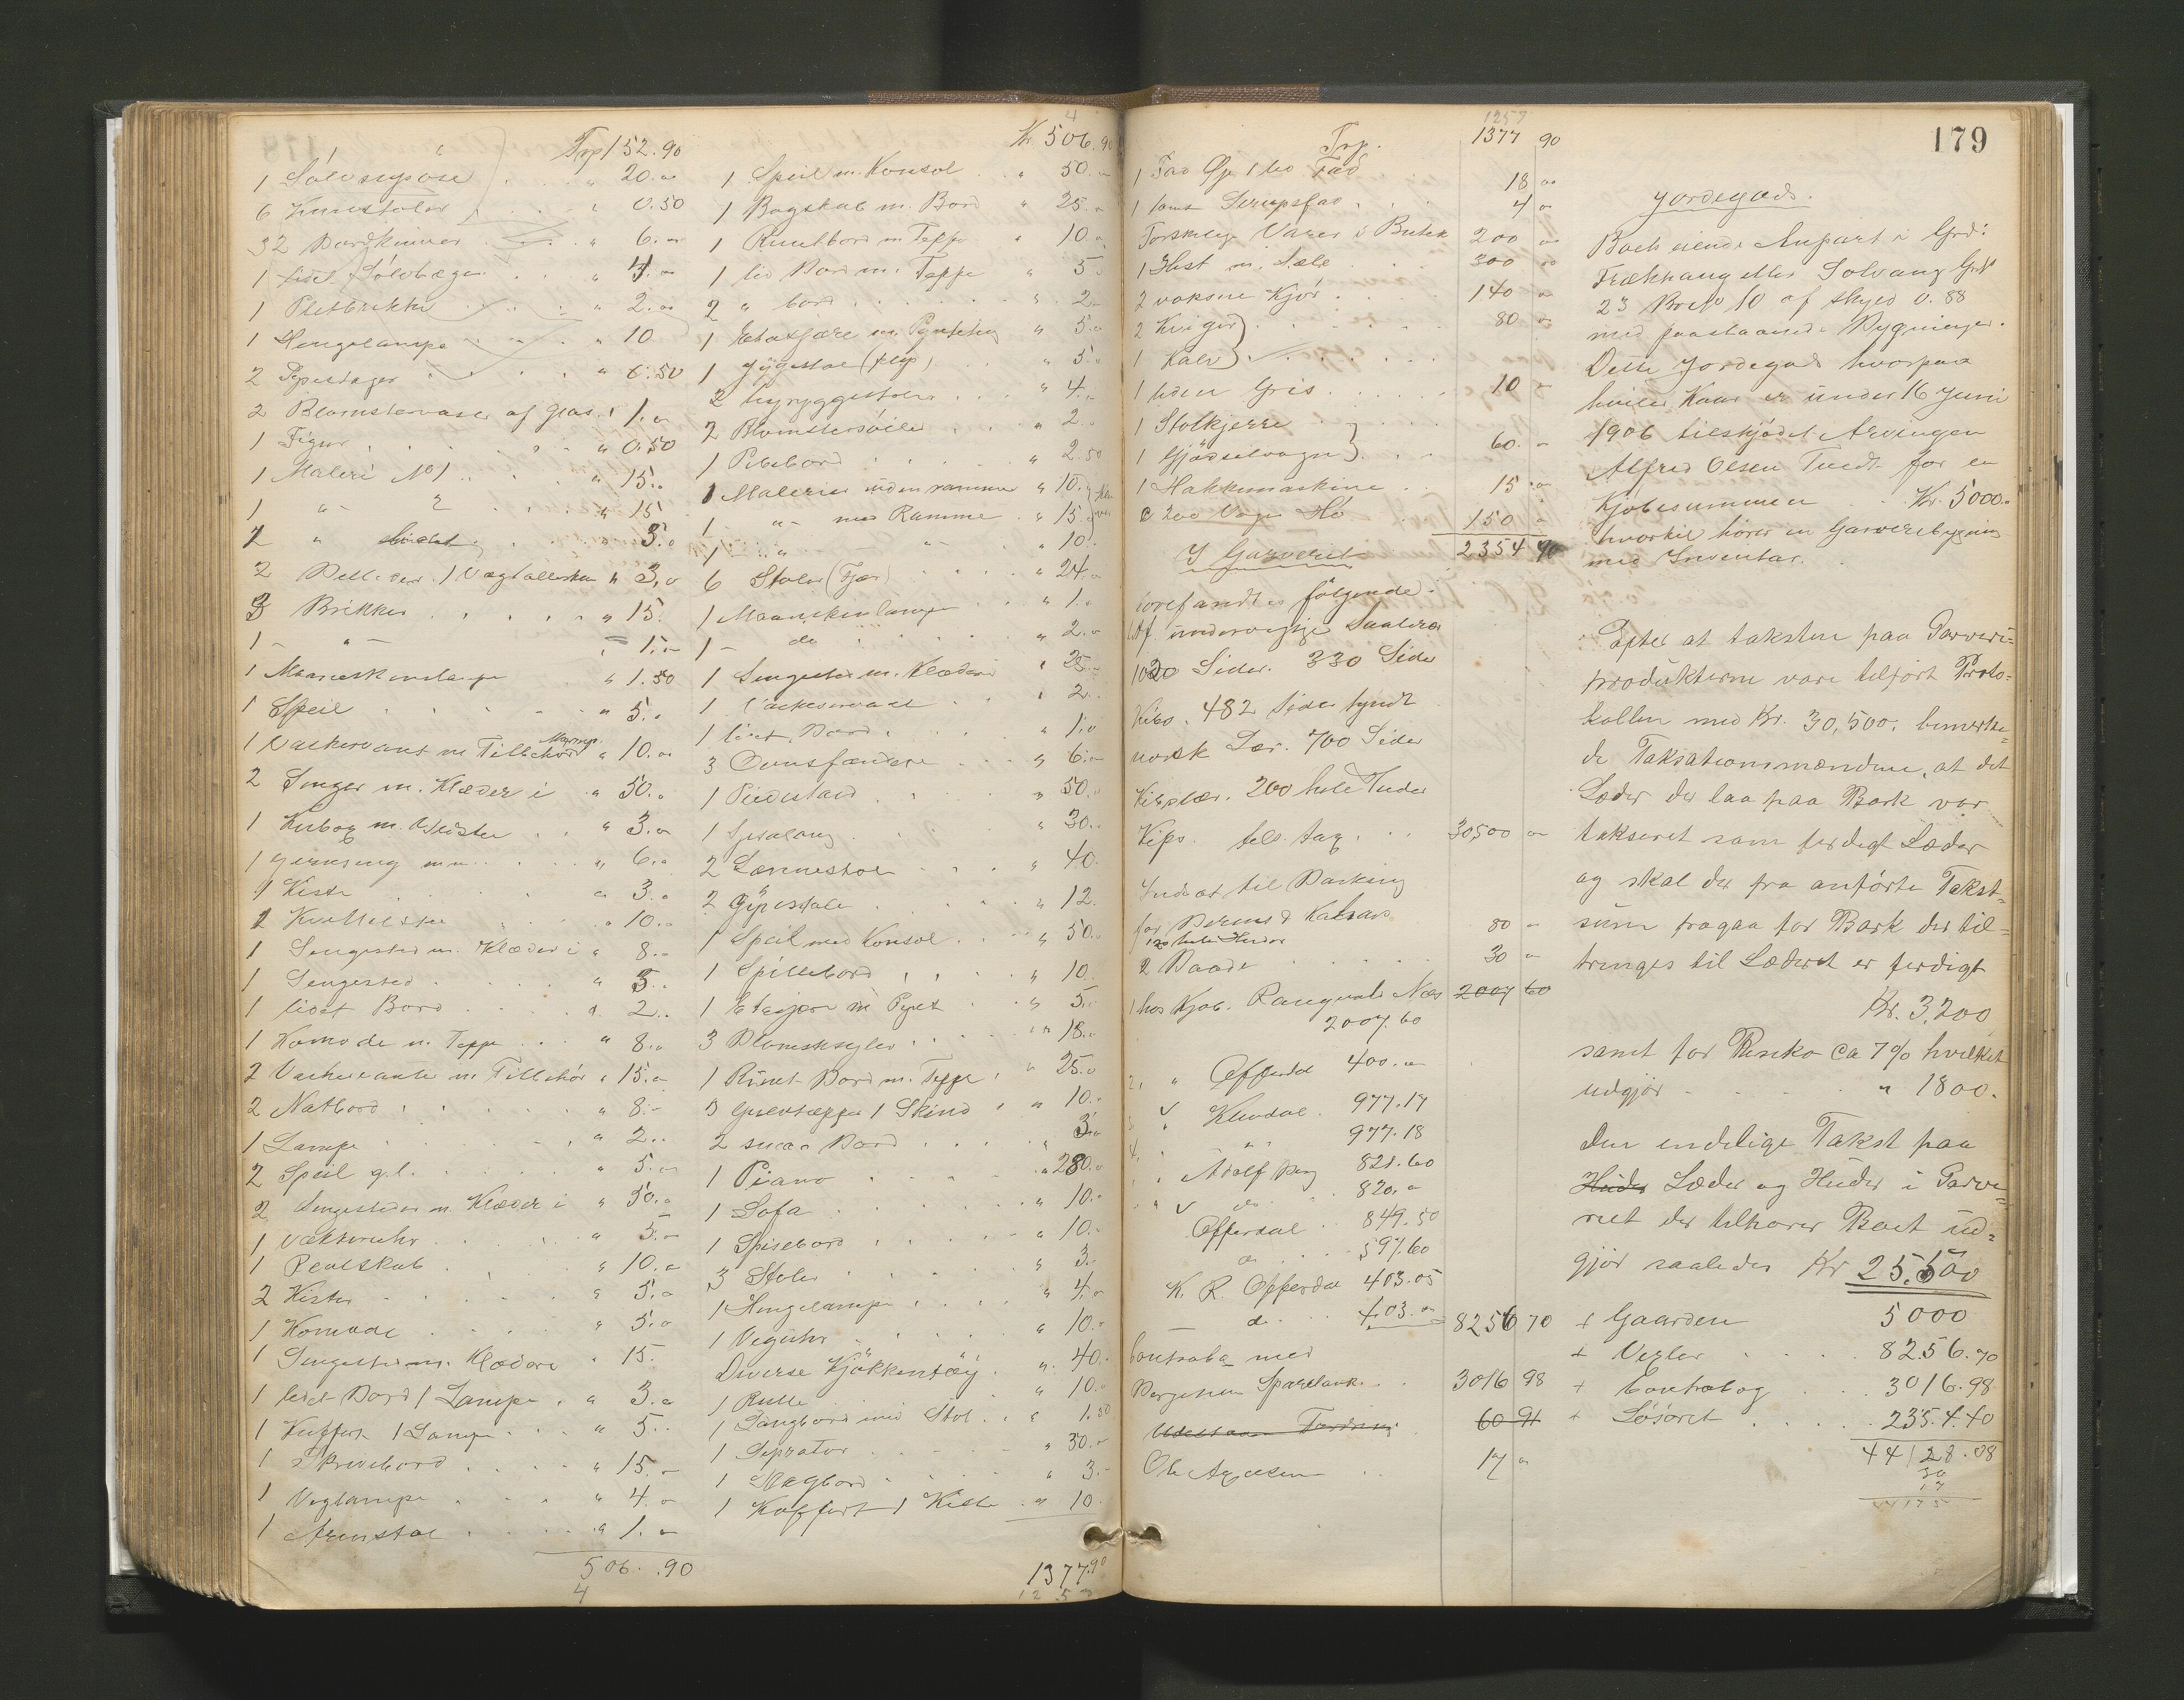 " " Trp 152.90
1 Sølvsupøse " 20.00
6 Knivstoler " 0.50
32 Bordkniver " 6.00
1 lidet Sølvbæger " 4.00
1 Pletbrikke " 2.00
1 Hengelampe " 10
2 Pibestager " 0.50
2 Blomstervaser af glas " 1.00
1 Figur " 0.50
1 Maleri No 1 " 15.
1 " 2 " 15
2 " " 3.0
2 1 Vægtallerken " 3.0
3 Brikker " 15.
1 - " - 1.
1 Maaneskinslampe " 1.50
1 Speil " 5.0
1 Vaskevant m Tilbehør " 10.00
2 Senger m. Klæder i " 50.
1 " 3.0
1 Jernseng " 6.0
1 Kiste " 3.
1 " 10.
1 Sengested m. Klæder i " 8.
1 Sengested " 5.
1 lidet Bord " 2.
1 Komode m. Teppe " 8.
2 Vaskevante m Tilbehør " 15.
2 Natbord " 8.
1 Lampe " 2.
2 Speil gl. " 5.
2 Sengesteder m. Klæder i " 50.
1 Vækkeruhr " 5.
1 Pealskab " 10.
2 Kister " 5.
1 Komode " 5.
1 Sengested m. Klæder " 15.
1 lidet Bord 1 Lampe " 3.
1 Kuffert 1 Lampe " 5.
1 Skrivebord " 15.
1 Veglampe " 4.
1 Armstol " 1.
506.90
4
4
Kr 506.90
1 Speil m. Konsol " 50.
1 Bogskab m. Bord " 25.
1 Rundtbord m Teppe " 10.
1 lid Bord m. Teppe " 5
2 " bord " 2
1 Etasjære m. " 5.
1 Gyngestol " 5.
2 høiryggestole " 4.
2 Blomstersøiler " 2.
1 Pibebord " 2.50
1 Malerier uden ramme " 10.
1 " - med Ramme " 15.
1 " - " - 10.
6 Stoler " 24.
1 Maaneskinlampe " 1.
1 - do " 2.
1 Sengested m. Klæder " 25.
1 Vaskeservant " 2.
1 lidet Bord " 1.
3 Ovnsfændere " 6.
1 Piedestald " 50.
1 " 30.
2 Lænnestole " 40.
2 Gipsstole " 12.
1 Speil med Konsol " 50.
1 Spillebord " 10.
1 Etasjære m Pynt " 5.
3 " 18.
1 Rundt Bord m. Teppe " 25.
3 Gulvtæpper 1 Skind " 10.
2 smaa Bord " 3.
1 Piano " 280.
1 Sofa " 10.
1 Spisebord " 10.
3 Stoler " 3.
1 Hengelampe " 4.
1 Veguhr " 10.
Diverse Kjøkkentøy " 40.
1 Rulle " 10.
1 Langbord med Stol " 1.50
1 Seprator " 30.
1 Slagbord " 3.
1 Koffert 1 Kiste " 10.
1377.90
1257
179
1257
Trp. 1377 90
1 Fad Øl 1 do Fad 18
1 tomt Sirupsfad 4
Forskjelige Varer i Butik 200
1 Hest m. Sæle 300
2 voksne Kjør 140
2 Kviger 80
1 Kalv
1 liden Gris 10
1 Stolkjerre
1 Gjødselvogn 60.
1 Hakkemaskine 15
C 200 Voger Hø 150
2354 90
I Garveriet
forefandtes følgende:
Af undervegtige Saaleder
1020 Sider. 330 Sider
Kibs. 482 Sider tyndt
norsk Lær. 700 Sider
Kibslær. 200 hele Huder
Kips. tils. tax. 30500
for
120 hele Huder 80
2 Baade 30
1 hos Kjøb. Rangvald Næs 2007 60
2007.60
2, " Offerdal 400.
3 " Klindal. 977.17
4. " " 977.18
Adolf 821.60
do 820.
Offerdal 849.50
do 597.60
K. R. Offerdal 403.05
do 403. 8256 70
Contrabog med
Bergens Sparebank 3016 98
Udestaaende Fordring 60 91
Ole 17
Jordegods.
Boets eiende Anpart i Grd:
Trækhaug eller Solvang G. No
23 Br No 10 af skyld 0.88
med paastaaende Bygninger.
Dette Jordegods hvorpaa
hviler Kaar er under 16 Juni
1906 tilskjødet Arvingen
Alfred Olsen for en
Kjøbesummen Kr. 5000.
hvortil hører en Garveribygning
med Inventar.
Efter at taksten paa Garveri=
produkterne vare tilført Proto=
kollen med Kr. 30,500, bemerke=
de Taksationsmændene, at det
Læder der laa paa Bark var
takseret som ferdigt Læder
og skal der fra anførte Takst=
sum fragaa for Bark der til=
trenges til Læderet er ferdigt
Kr. 3,200
samt for Risiko Ca 7% hvilket
udgjør " 1800.
Den endelige Takst paa
Huder Læder og Huder i Garve=
riet der tilhører Boet ud=
gjør saaledes Kr 25.500
+ Gaarden 5000
+ Vexler 8256.70
+ Contrabog 3016.98
+ Løsøret 2354.40
44128.08
30
17
44175